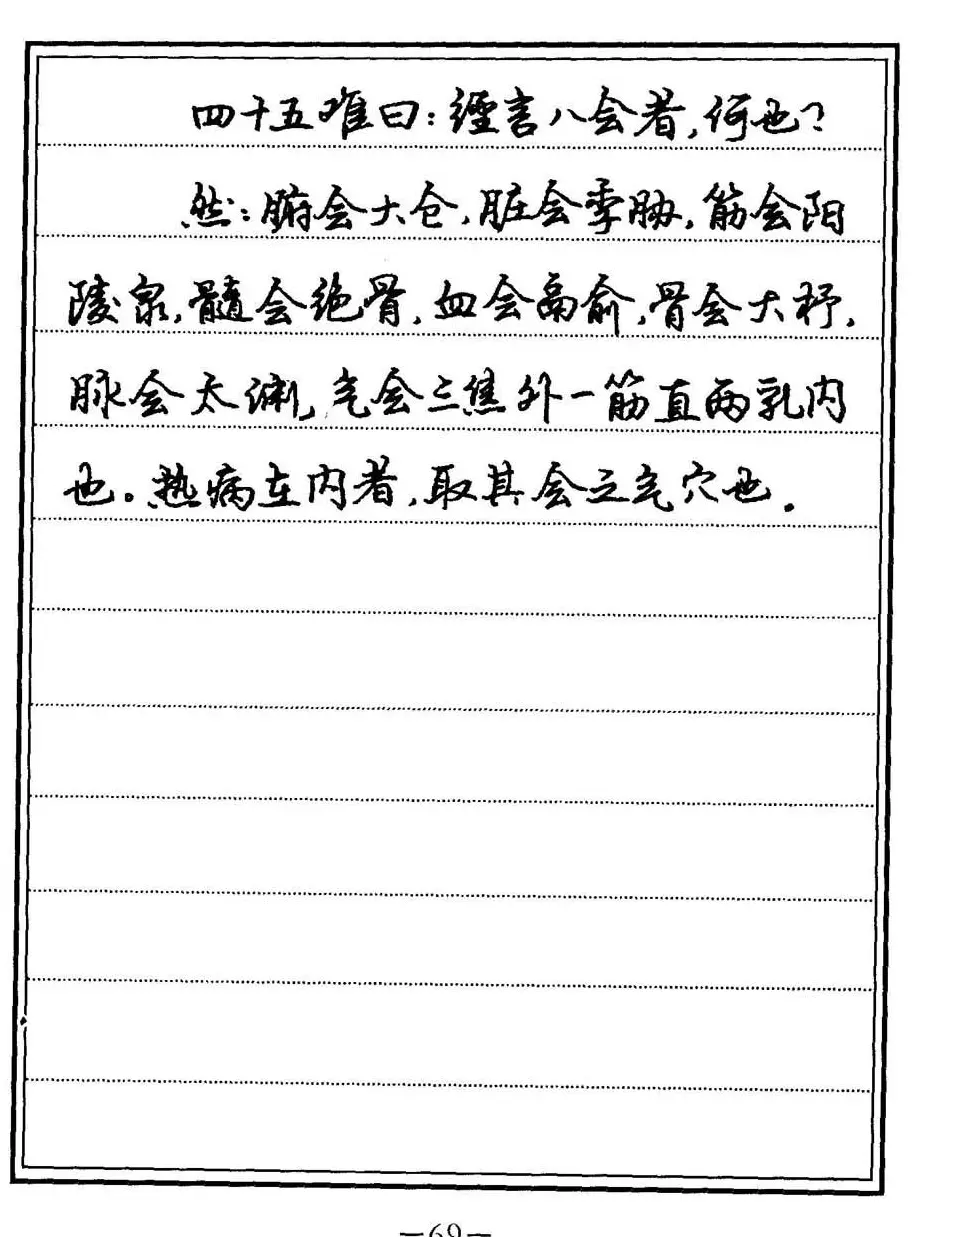 四十五难曰：經言八会者，何也？
然：腑会大仓，脏会季胁，筋会阳
陵泉，髓会绝骨，血会鬲俞，骨会大杼，
脉会太渊，气会三焦外一筋直两乳内
也。热病在内者，取其会之气穴也。
—69—